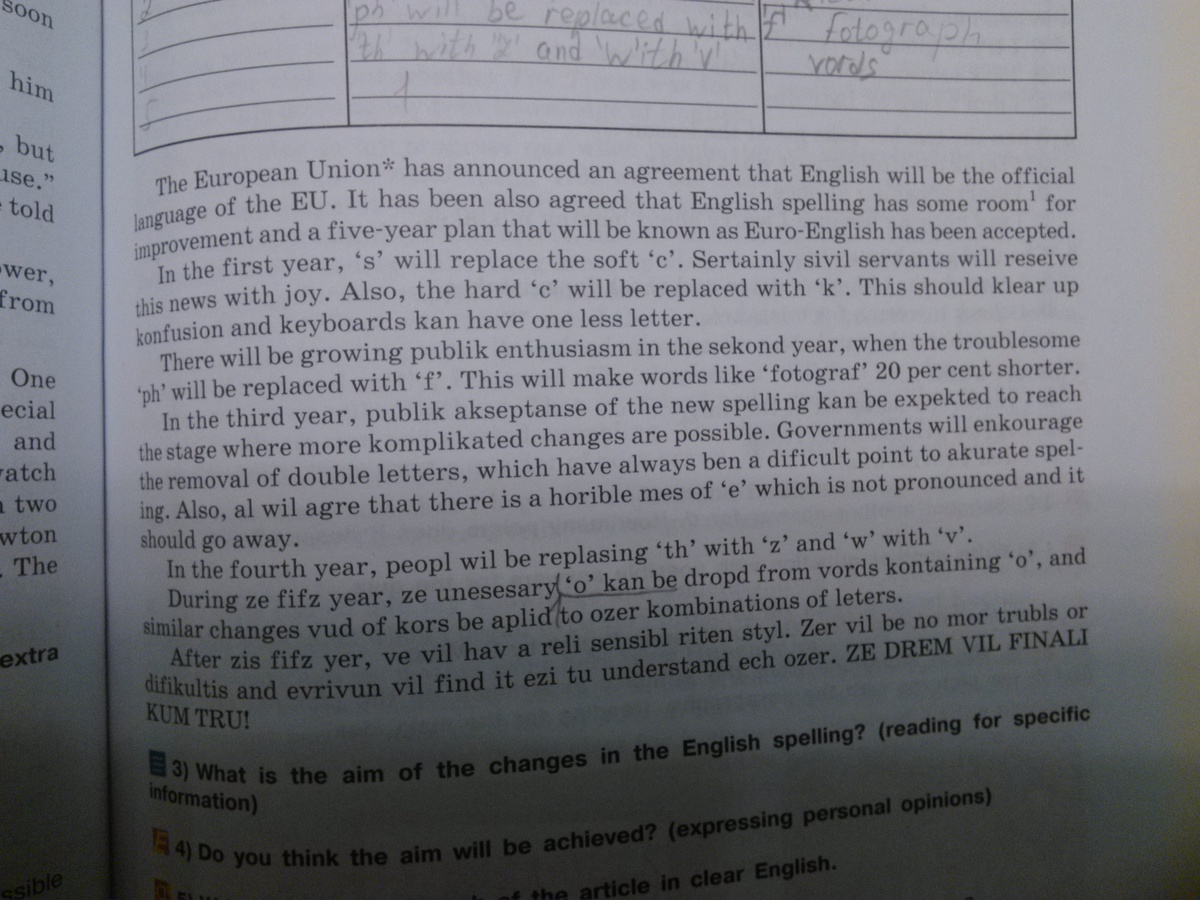 soon
him
, but
use.”
told
ower,
from
One
ecial
and
watch
two
wton
. The
extra
ssible
2
3
4
5
'ph' will be replaced with
'th' with 'z' and 'w'ith 'v'
'f' fotograph
vords
The European Union* has announced an agreement that English will be the official
language of the EU. It has been also agreed that English spelling has some room¹ for
improvement and a five-year plan that will be known as Euro-English has been accepted.
In the first year, ‘s’ will replace the soft ‘c’. Sertainly sivil servants will reseive
this news with joy. Also, the hard ‘c’ will be replaced with ‘k’. This should klear up
konfusion and keyboards kan have one less letter.
There will be growing publik enthusiasm in the sekond year, when the troublesome
‘ph’ will be replaced with ‘f’. This will make words like ‘fotograf’ 20 per cent shorter.
In the third year, publik akseptanse of the new spelling kan be expekted to reach
the stage where more komplikated changes are possible. Governments will enkourage
the removal of double letters, which have always ben a dificult point to akurate spel-
ing. Also, al wil agre that there is a horible mes of ‘e’ which is not pronounced and it
should go away.
In the fourth year, peopl wil be replasing ‘th’ with ‘z’ and ‘w’ with ‘v’.
During ze fifz year, ze unesesary ‘o’ kan be dropd from vords kontaining ‘o’, and
similar changes vud of kors be aplid to ozer kombinations of leters.
After zis fifz yer, ve vil hav a reli sensibl riten styl. Zer vil be no mor trubls or
difikultis and evrivun vil find it ezi tu understand ech ozer. ZE DREM VIL FINALI
KUM TRU!
3) What is the aim of the changes in the English spelling? (reading for specific
information)
4) Do you think the aim will be achieved? (expressing personal opinions)
of the article in clear English.